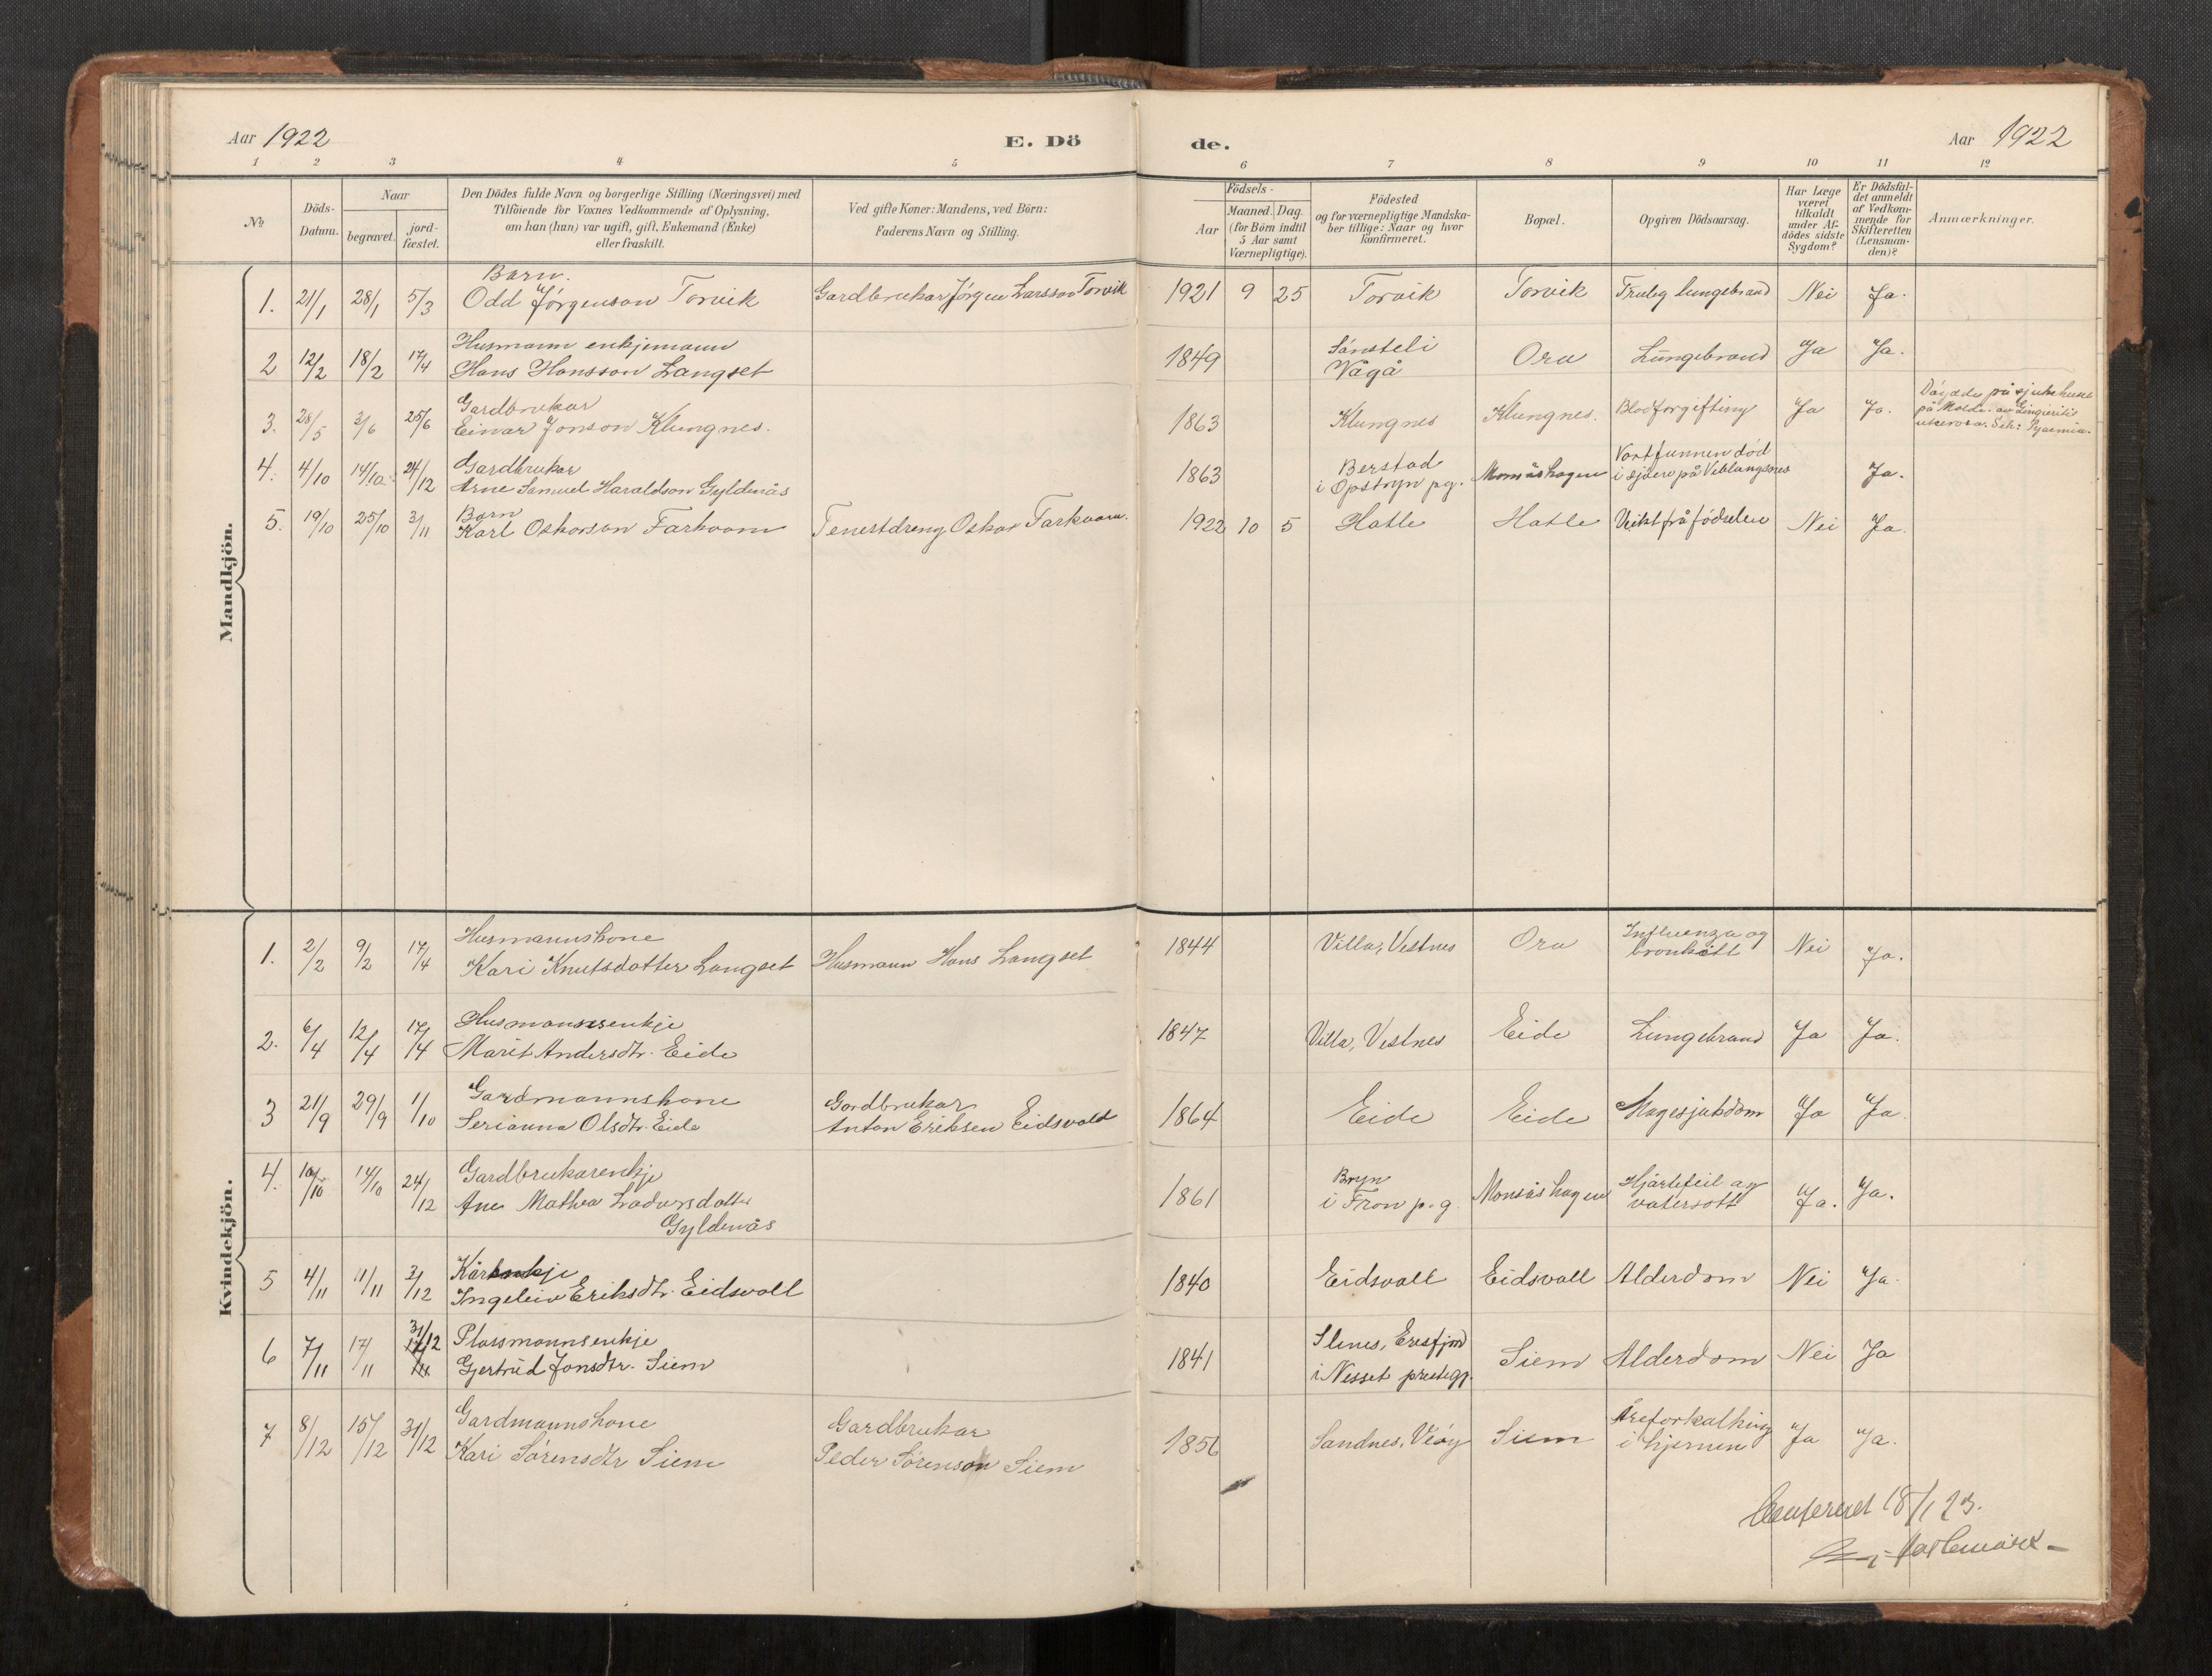 Aar 1922
E. Dö
de.
Aar 1922
1 2 3 4 5 6 7 8 9 10 11 12
No
Döds-
Datum.
Naar
begravet.
jord-
fæstet.
Den Dödes fulde Navn og borgerlige Stilling (Næringsvei) med
Tilföiende for Voxnes Vedkommende af Oplysning,
om han (hun) var ugift, gift, Enkemand (Enke)
eller fraskilt.
Ved gifte Koner: Mandens, ved Börn:
Faderens Navn og Stilling.
Födsels-
Aar
Maaned. Dag.
(for Börn indtil
5 Aar samt
Værnepligtige).
Födested
og for værnepligtige Mandska-
ber tillige: Naar og hvor
konfirmeret.
Bopæl.
Opgiven Dödsaarsag.
Har Læge
været
tilkaldt
under Af-
dödes sidste
Sygdom?
Er Dödsfal-
det anmeldt
af Vedkom-
mende for
Skifteretten
(Lensman-
den)?
Anmærkninger.
Mandkjön.
Barn.
1. 21/1 28/1 5/3 Odd Jörgenson Torvik Gardbrukar Jörgen Larsson Torvik 1921 9 25 Torvik Torvik Truleg lungebrand Nei Ja.
Husmann enkjemann
2 12/2 18/2 17/4 Hans Hansson Langset 1849 Vågå Ora Lungebrand Ja Ja.
Gardbrukar
3. 28/5 3/6 25/6 Einar Jonson Klungnes. 1863 Klungnes Klungnes. Blodforgiftning Ja Ja. Döydde på sjukehuset
på Molde.
Gardbrukar
4. 4/10 14/10 24/12 Arne Samuel Haraldson Gyldenås 1863 Berstad
i Opstryn pg. Monsåshagen Vart funnen död
i sjöen på Veblungsnes Ja.
Barn
5. 19/10 25/10 3/11 Karl Oskarson Farkvam Tenestdreng Oskar Farkvam. 1922 10 5 Hatle Hatle Veikt frå födselen Nei Ja.
Kvindekjön.
Husmannskone
1. 2/2 9/2 17/4 Kari Knutsdotter Langset Husmann Hans Langset 1844 Villa, Vestnes Ora Influenza og
bronkitt Nei Ja.
Husmannsenkje
2. 6/4 12/4 17/4 Marit Andersdtr. Eide 1847 Villa, Vestnes Eide Lungebrand Ja Ja.
Gardmannskone
3 21/9 29/9 1/10 Serianna Olsdtr. Eide Gardbrukar
Anton Eriksen Eidsvold 1864 Eide Eide Magesjukdom Ja Ja
Gardbrukarenkje
4. 10/10 14/10 24/12 Ane Mathea
Gyldenås 1861 Bryn
i Fron p.g. Monsåshagen Hjartefeil og
vatersott Ja. Ja.
Kårenkje
5 4/11 11/11 3/12 Ingeleiv Eriksdtr. Eidsvoll 1840 Eidsvoll Eidsvoll Alderdom Nei Ja.
Plassmannsenkje
6 7/11 17/11 31/12 Gjertrud Jonsdtr. Siem 1841 Slenes, Eresfjord
i Nesset prestegj. Siem Alderdom Nei Ja
Gardmannskone
7 8/12 15/12 31/12 Kari Sörensdtr Siem Gardbrukar
Peder Sörenson Siem 1856 Sandnes, Veöy Siem Åreforkalking
i hjernen Ja Ja.
Confereret 18/1 23.